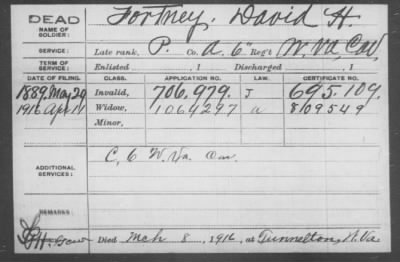 DEAD
NAME OF SOLDIER:
Fortney, David H.
SERVICE:
Late rank, P. Co. A, 6" Reg't W. Va. Cav.
TERM OF SERVICE:
Enlisted , 1 Discharged , 1
DATE OF FILING. CLASS. APPLICATION NO. LAW. CERTIFICATE NO.
1889, May 29 Invalid, 706,979. J 695.109.
1916 Apr 11 Widow, 1064297 a 809549
Minor,
ADDITIONAL SERVICES:
C, 6 W. Va. Cav.
REMARKS:
Died Mch 8, 1916, at Tunnelton, W. Va.